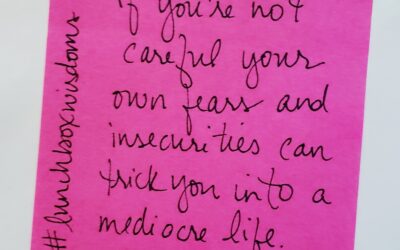 If you're not
careful your
own fears and
insecurities can
trick you into a
mediocre life.
#lunchboxwisdoms